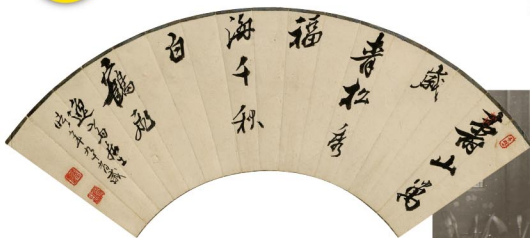 壽山萬
歲
青松秀
福
海千秋
白
鶴飛
年九十